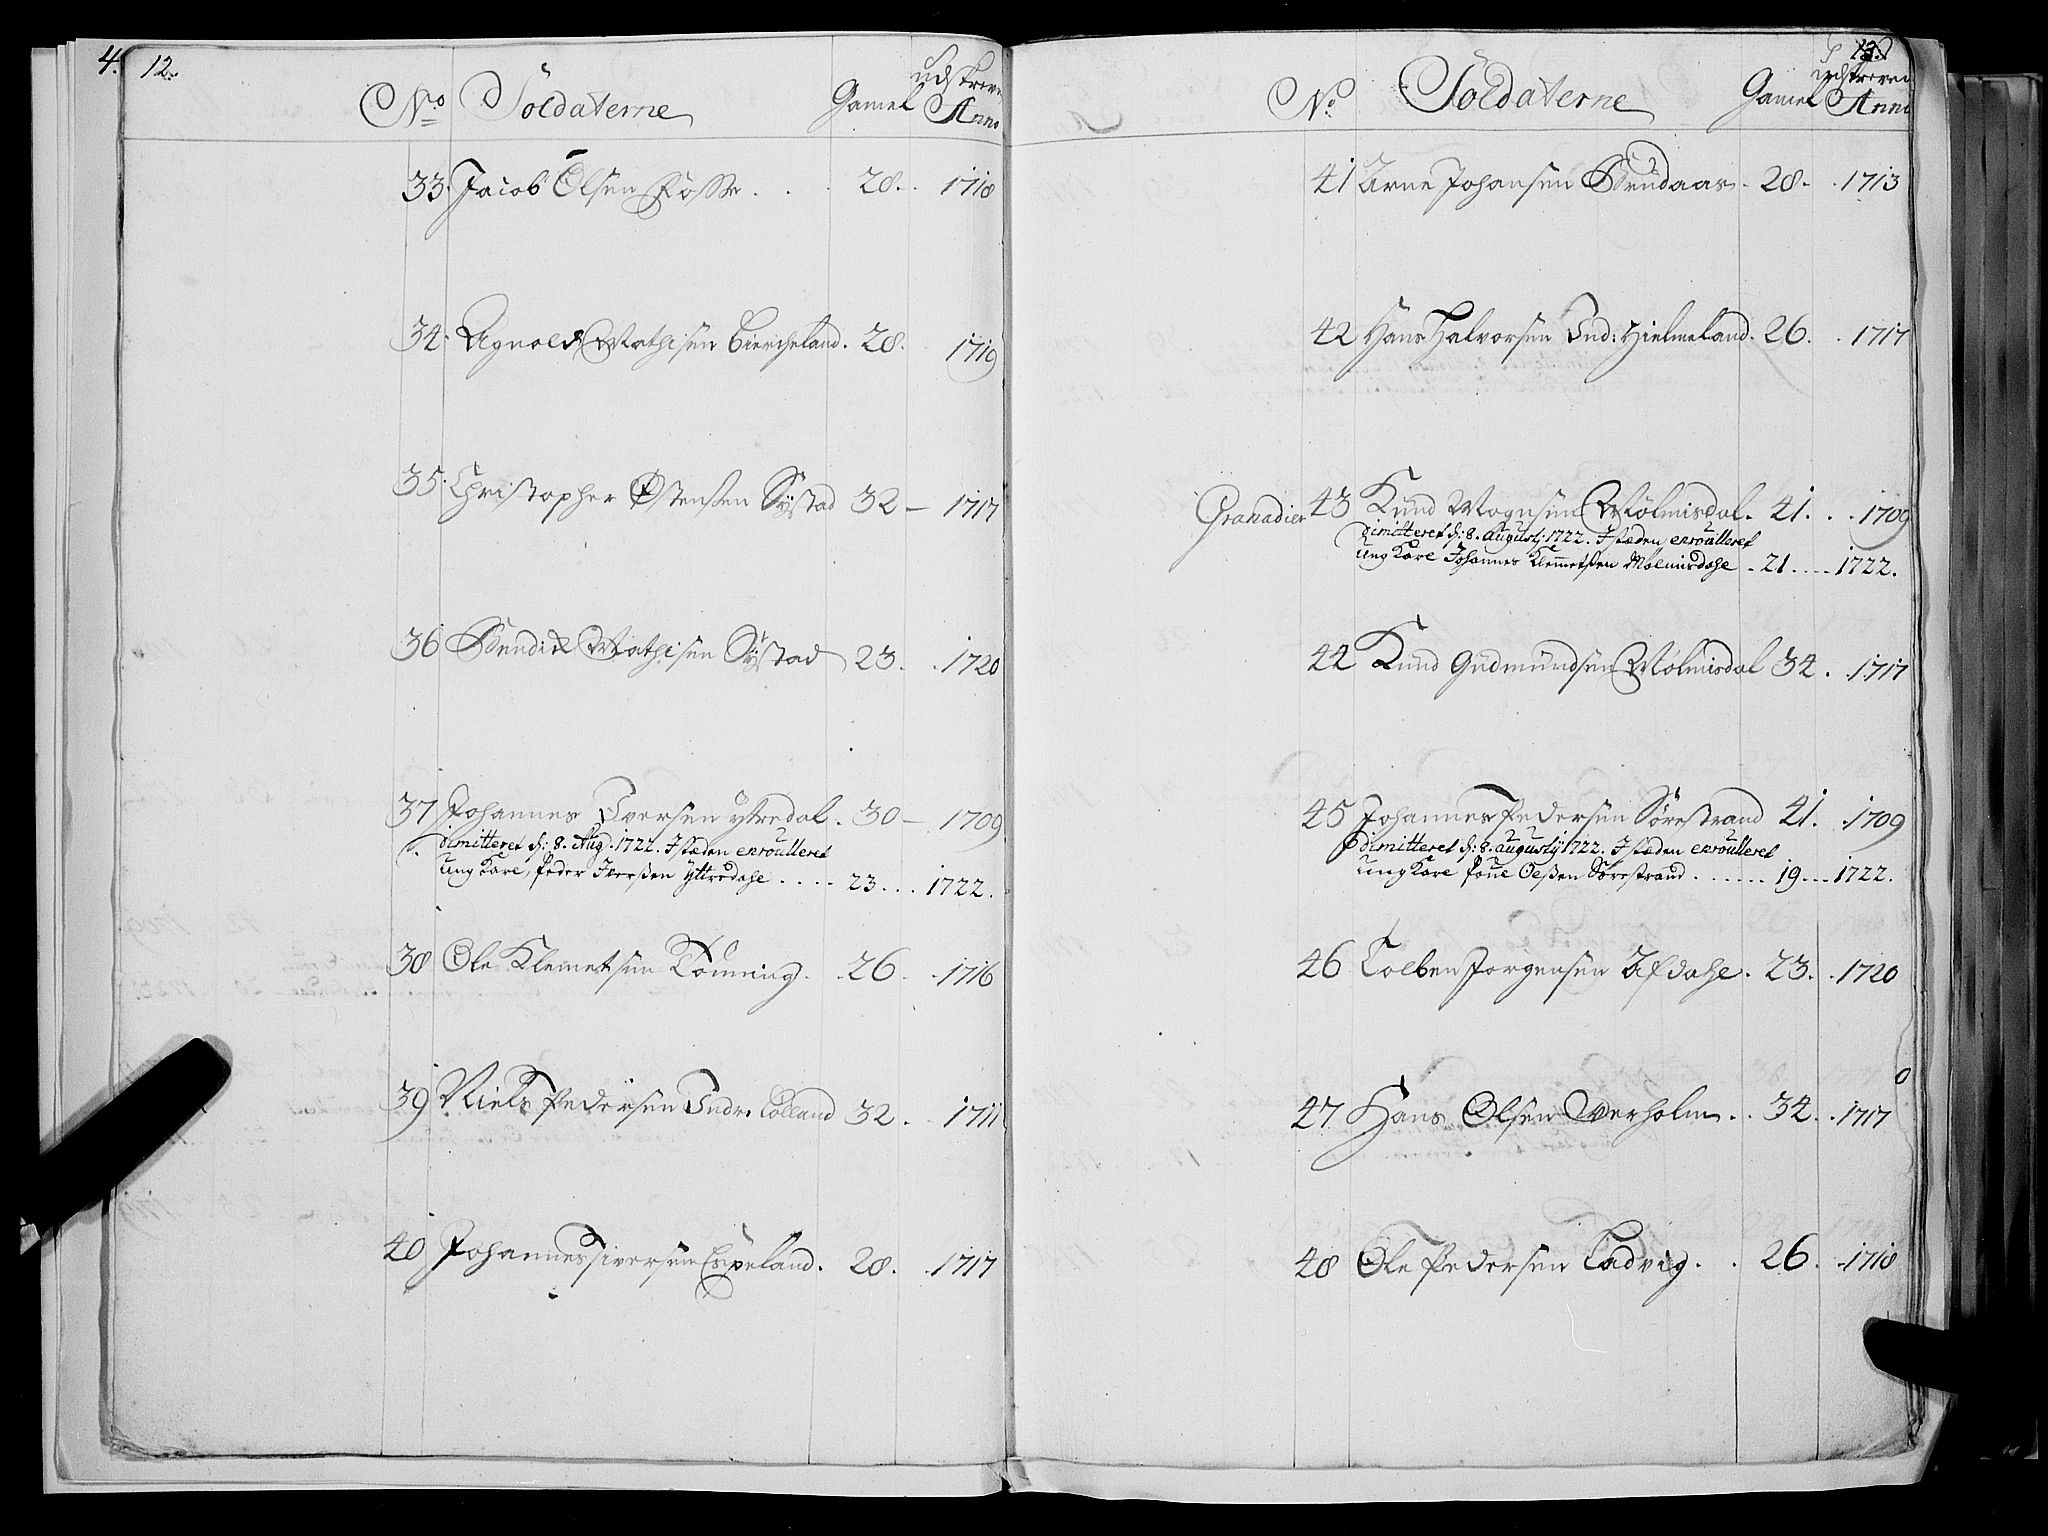 4. 12.
No Soldaterne Gamel udskreven Anno
33. Jacob Olsen Fosse . . . 28. . 1718
34. Agnold Mathisen Biercheland. 28. 1719
35. Christopher Østensen Systad 32 – 1717
36 Bendix Mathisen Systad 23. . 1720
37 Johannes Iversen ytredal. 30 – 1709
dimitteret d: 8. Aug. 1722. I stæden enroulleret
ung Karl, Peder Iverßen yttredahl . . . . 23 . . . 1722.
38 Ole Klemetsen Tønning. . 26. . 1716
39 Niels Pedersen Indr. Colland 32. . 1711
40 Johannes siversen Espeland. 28. . 1717
13.
No. Soldaterne Gamel udskreven Anno
41 Arne Johansen Brudaas. 28. . 1713
42 Hans Halvorsen Ind: Hielmeland. 26. . 1717
Granadier 43 Knud Mognsen Mølmisdal. 41. . . 1709
dimitteret d: 8. Augustj 1722. I stæden enroulleret
ung Karl Johannes Klemetßen Mølmisdahl . 21 . . . . 1722.
44 Knud Gudmundsen Mølmisdal 34. . 1717
45 Johannes Pedersen Sørestrand 41. . 1709
dimitteret d: 8. Augustij 1722. I stæden enroulleret
ung Karl Oelßen Sørestrand . . . . . . 19 . . . 1722.
46 Tolben Jorgensen Afdahl. 23. . 1720
47 Hans Olsen Werholm. . 34. . 1717
48 Ole Pedersen Ladvig. . 26. . 1718